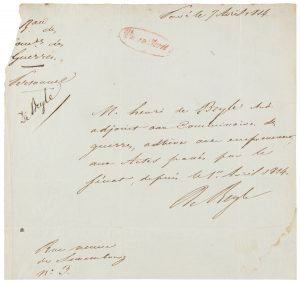 Paris le 7 Avril 1814.
Bau
de
des
Guerres
Personnel
De Beyle
M. henri de Beyle
adjoint aux Commissaires des
guerres, adhère avec empressement
aux Actes passés par le
Sénat, depuis le 1er Avril 1814.
De Beyle
Rue neuve
de Luxembourg
n° 3.